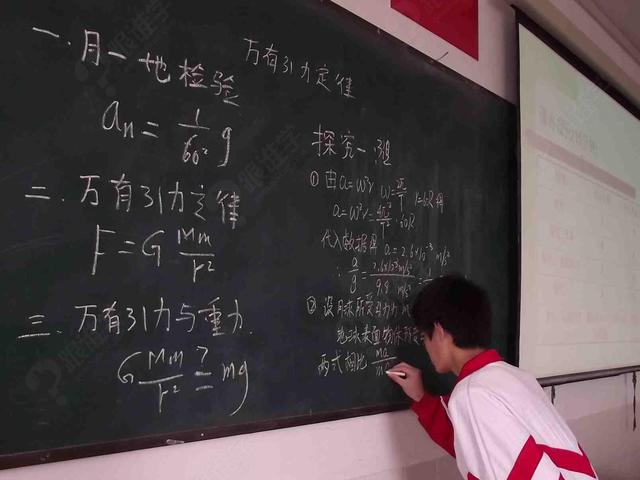 万有引力定律
一.月一地检验
an = 1/60² g
二.万有引力定律
F = G Mm/r²
三.万有引力与重力.
G Mm/r² ?= mg
探究一:组
①由a=ω²r ω=2π/T r=60R得
a=ω²r=4π²/T²·60R
代入数据得 a=2.6×10⁻³ m/s²
∴ a/g = 2.6×10⁻³m/s²/9.8 m/s²
②设月球所受引力为
地球表面物体所受
两式相比 ma/m